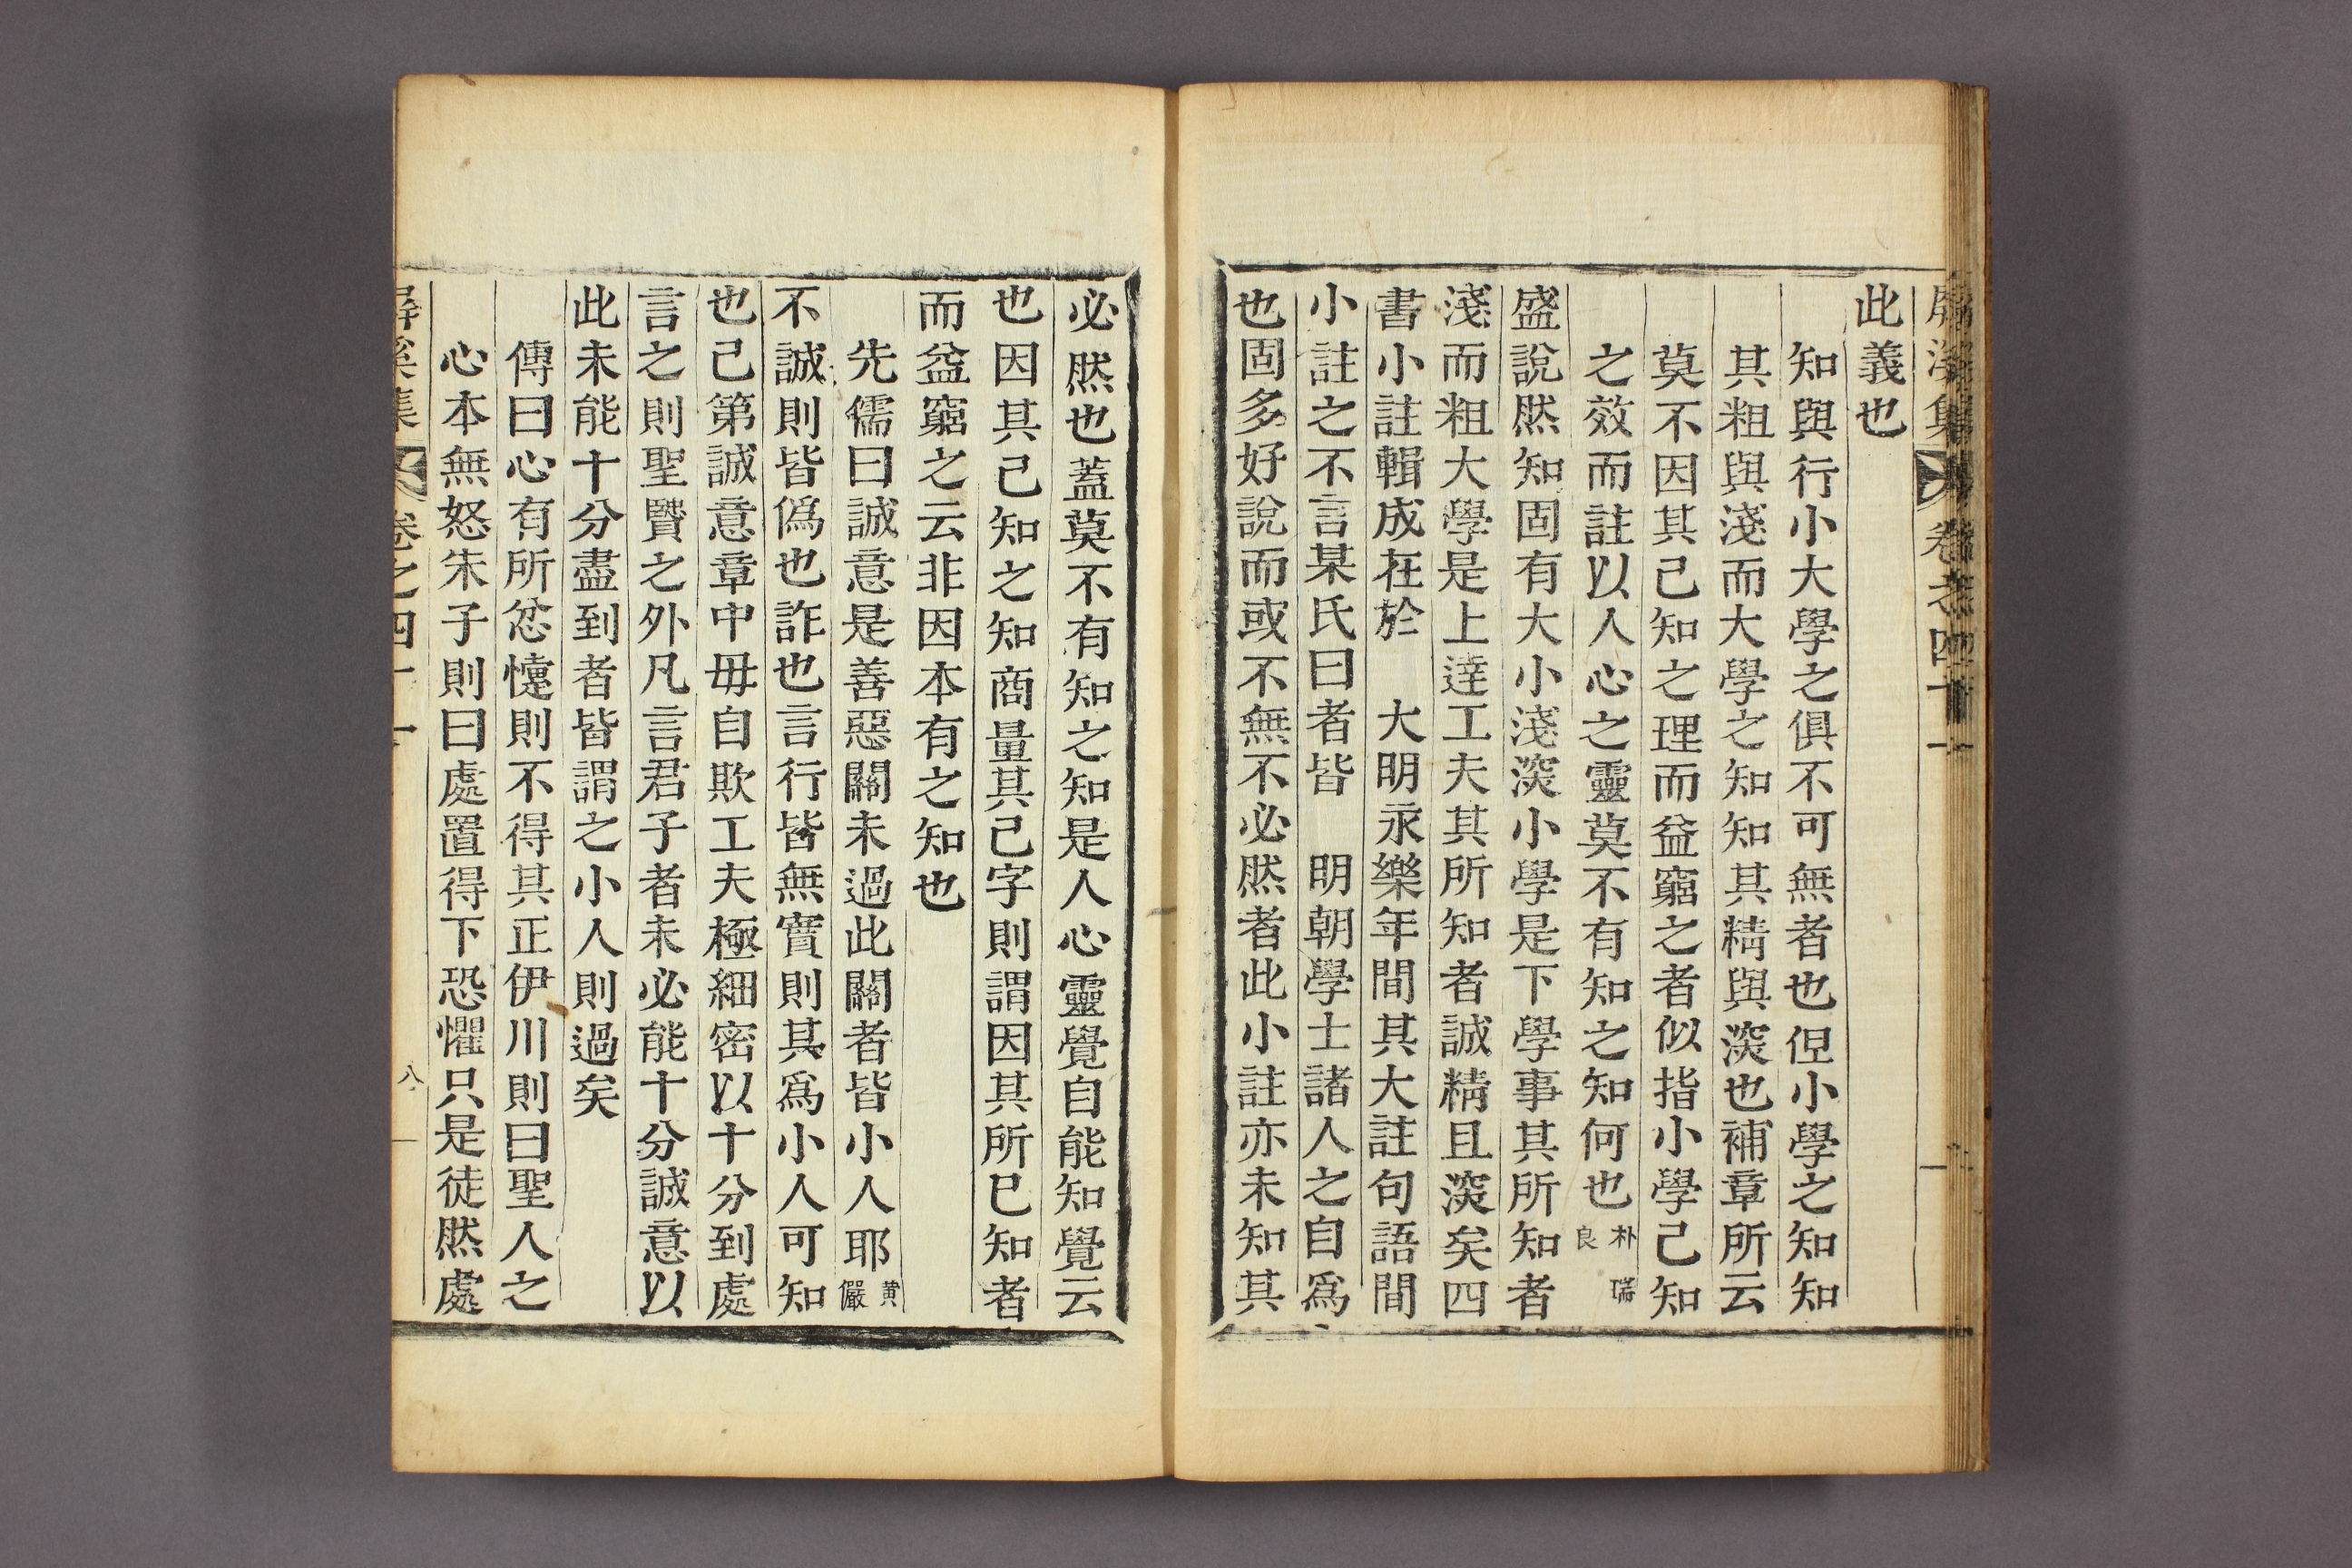 屏溪集 卷之四十一
此義也
知與行小大學之俱不可無者也但小學之知知
其粗與淺而大學之知知其精與深也補章所云
莫不因其己知之理而益窮之者似指小學己知
之效而註以人心之靈莫不有知之知何也 朴瑞良
盛說然知固有大小淺深小學是下學事其所知者
淺而粗大學是上達工夫其所知者誠精且深矣四
書小註輯成在於 大明永樂年間其大註句語間
小註之不言某氏曰者皆 明朝學士諸人之自爲
也固多好說而或不無不必然者此小註亦未知其
必然也蓋莫不有知之知是人心靈覺自能知覺云
也因其己知之知商量其己字則謂因其所已知者
而益窮之云非因本有之知也
先儒曰誠意是善惡關未過此關者皆小人耶 黃儼
不誠則皆僞也詐也言行皆無實則其爲小人可知
也己第誠意章中毋自欺工夫極細密以十分到處
言之則聖贒之外凡言君子者未必能十分誠意以
此未能十分盡到者皆謂之小人則過矣
傳曰心有所忿懥則不得其正伊川則曰聖人之
心本無怒朱子則曰處置得下恐懼只是徒然處
屏溪集 卷之四十一 八